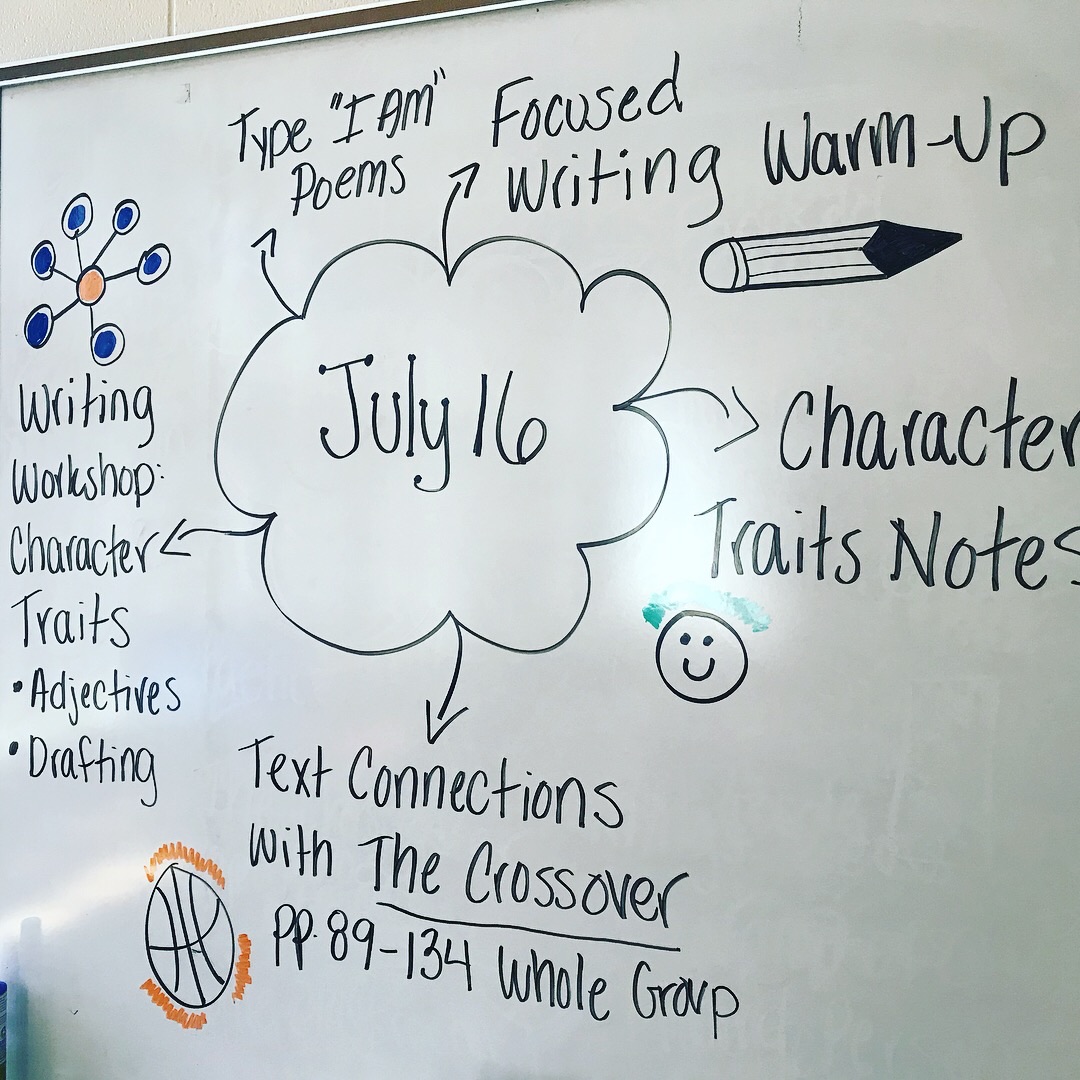 Type "I AM"
Poems
Focused
Writing Warm-Up
July 16
Character
Traits Notes
Writing
Workshop:
Character
Traits
• Adjectives
• Drafting
Text Connections
with The Crossover
pp. 89-134 Whole Group